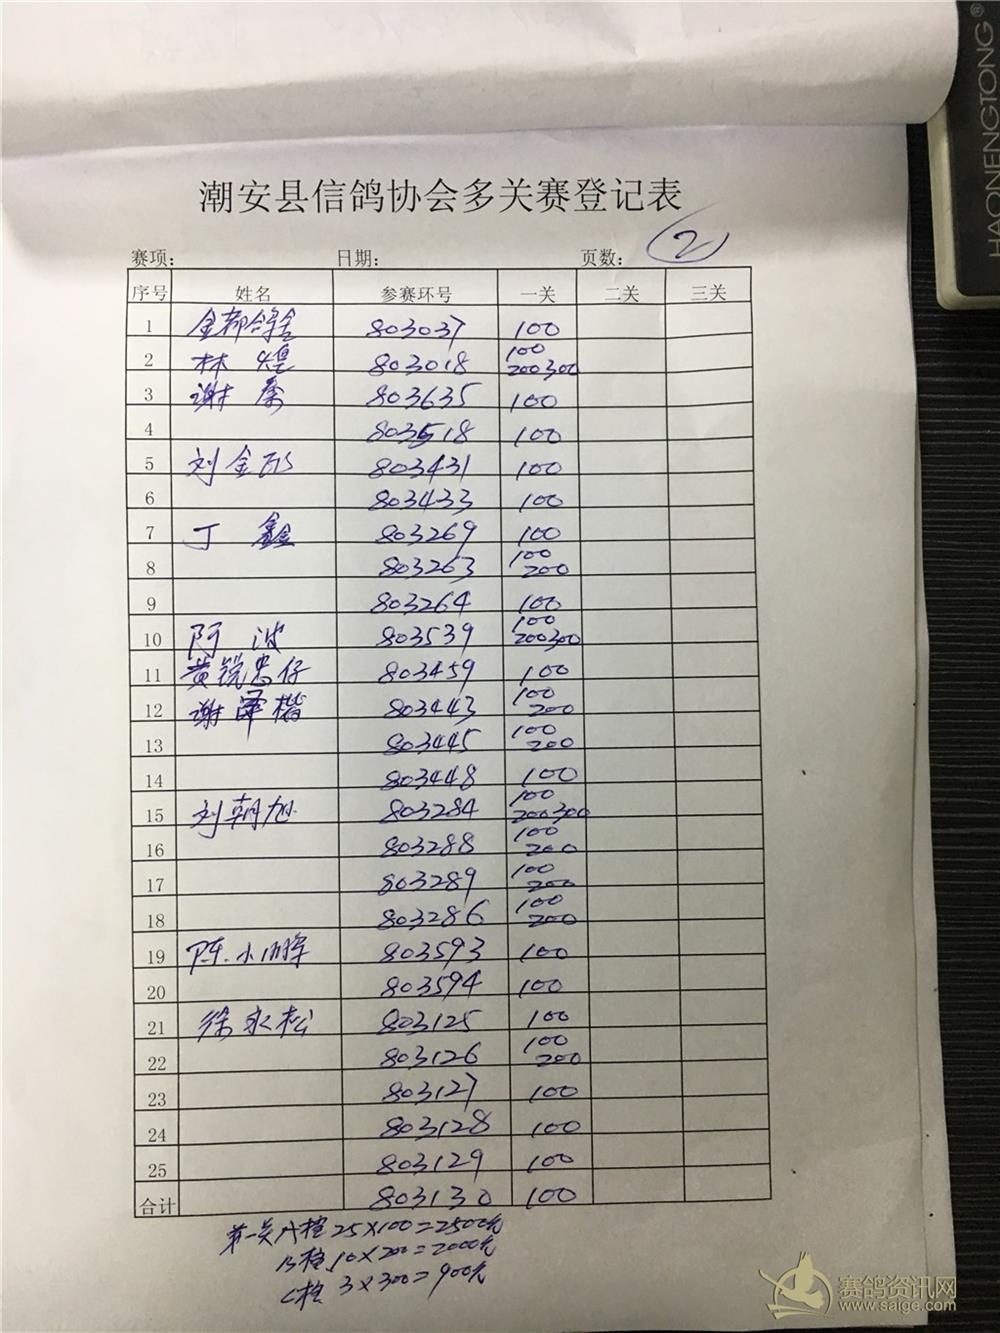 HAONENGTONG®
潮安县信鸽协会多关赛登记表
赛项: 日期: 页数: 2
序号 姓名 参赛环号 一关 二关 三关
1 金都鸽舍 803037 100
2 林 煌 803018 100 200 300
3 谢 803635 100
4 803518 100
5 刘金 803431 100
6 803433 100
7 丁 鑫 803269 100
8 803263 100 200
9 803264 100
10 阿 波 803539 100 200 300
11 黄锐忠仔 803459 100
12 谢泽楷 803443 100 200
13 803445 100 200
14 803448 100
15 刘朝旭 803284 100 200 300
16 803288 100 200
17 803289 100 200
18 803286 100 200
19 陈小 803593 100
20 803594 100
21 徐永松 803125 100
22 803126 100 200
23 803127 100
24 803128 100
25 803129 100
合计 803130 100
第一关A栓 25×100=2500元
B栓 10×200=2000元
C栓 3×300=900元
赛鸽资讯网
www.saige.com